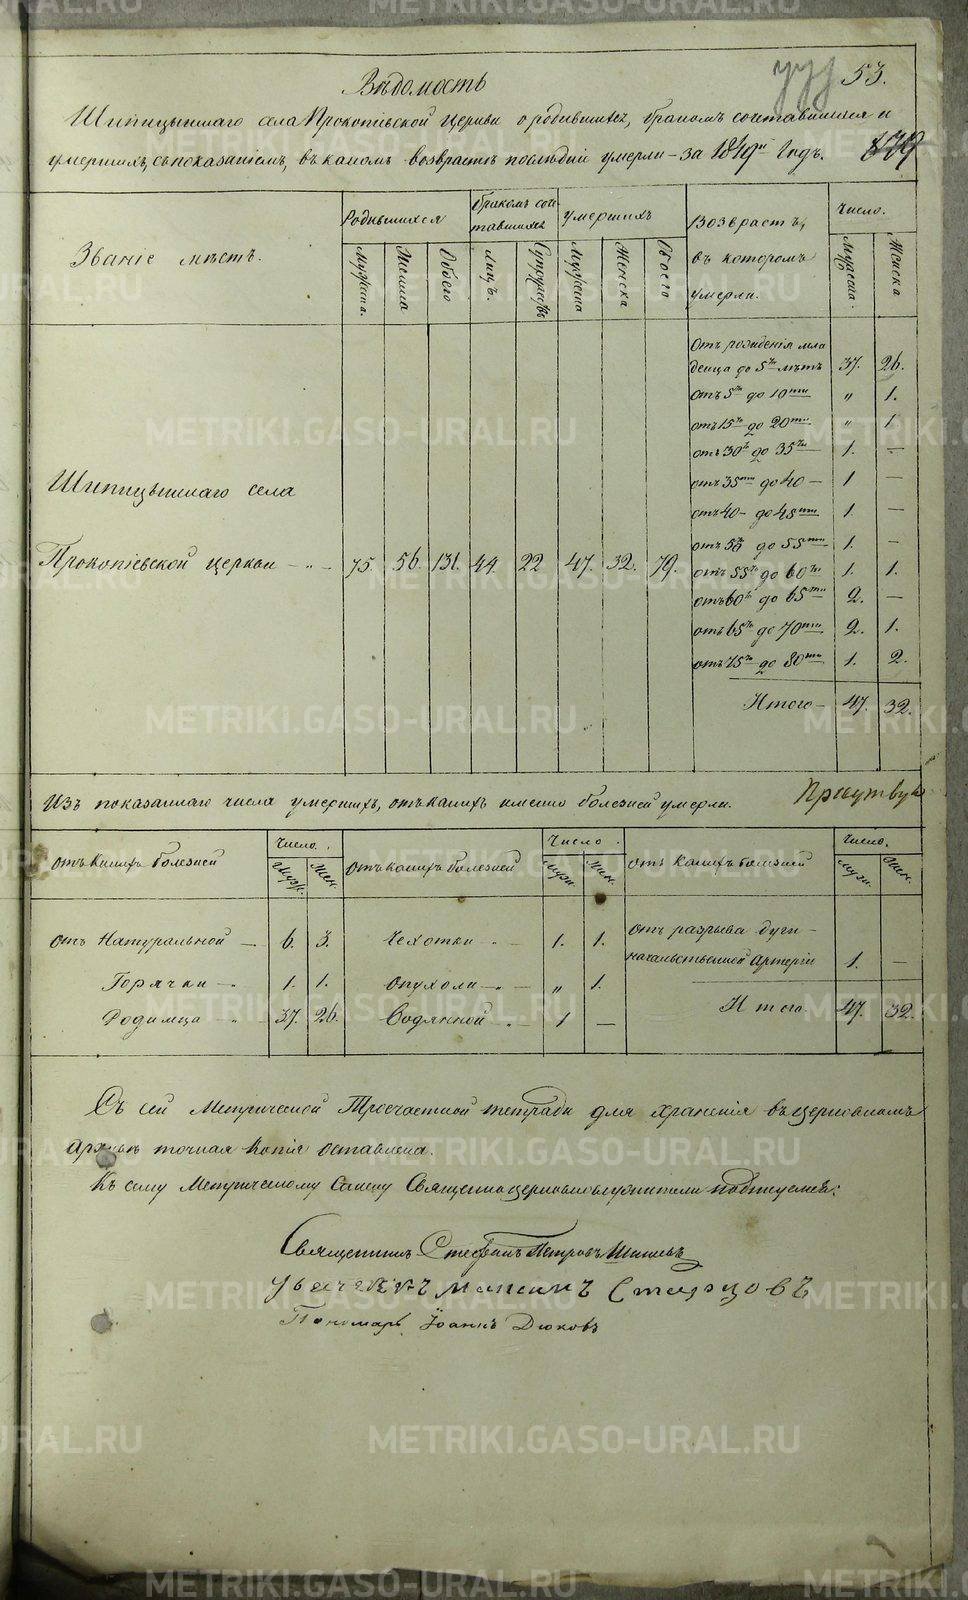 53.
Вѣдомость
Шипицынскаго села Прокопіевской церкви о родившихся, бракомъ сочетавшихся и
умершихъ, съ показаніемъ, въ какомъ возврастѣ послѣдніе умерли – за 1849й Годъ. 879
Званіе мѣстъ.
Родившихся
бракомъ соче-
тавшихся
умершихъ
Возврастъ,
въ которомъ
умерли.
Число.
Мужеска.
Женска
Обоего
лицъ.
Супружествъ
Мужеска
Женска
Обоего
Мужеска.
Женска
Отъ рожденія мла
денца до 5ти лѣтъ 37. 26.
отъ 5ти до 10ти „ 1.
отъ 15ти до 20ти „ 1
отъ 30ти до 35ти 1. —
отъ 35ти до 40 – 1 —
отъ 40 – до 45ти 1. —
отъ 50 до 55ти 1. —
отъ 55ти до 60ти 1. 1.
отъ 60ти до 65ти 2. —
отъ 65ти до 70ти 2. 1.
отъ 75ти до 80ти 1. 2.
Итого – 47. 32.
Шипицынскаго села
Прокопіевской церкви – „ – 75. 56. 131. 44. 22 47. 32. 79.
Изъ показаннаго числа умершихъ, отъ какихъ именно болезней умерли.
отъ какихъ болезней
Число.
Муж.
Жен.
отъ какихъ болезней
Число.
Муж.
Жен.
отъ какихъ болезней
Число.
Муж.
Жен.
отъ Натуральной – 6. 3.
Горячки – „ 1. 1.
Родимца – „ 37. 26.
Чехотки „ – 1. 1.
опухоли – „ – „ 1.
Водянной „ – 1 —
отъ разрыва духи –
начальственной Артеріи 1. —
Итого. 47. 32.
Съ сей Метрической Троечастной тетради для храненія въ церковномъ
Архивѣ точная копія оставлена.
Къ сему Метрическому Списку Священноцерковнослужители подписуемся:
Священникъ Стефанъ Петровъ Шишевъ
Дьячекъ Максимъ Старцовъ
Пономарь Іоаннъ Дюковъ
METRIKI.GASO-URAL.RU